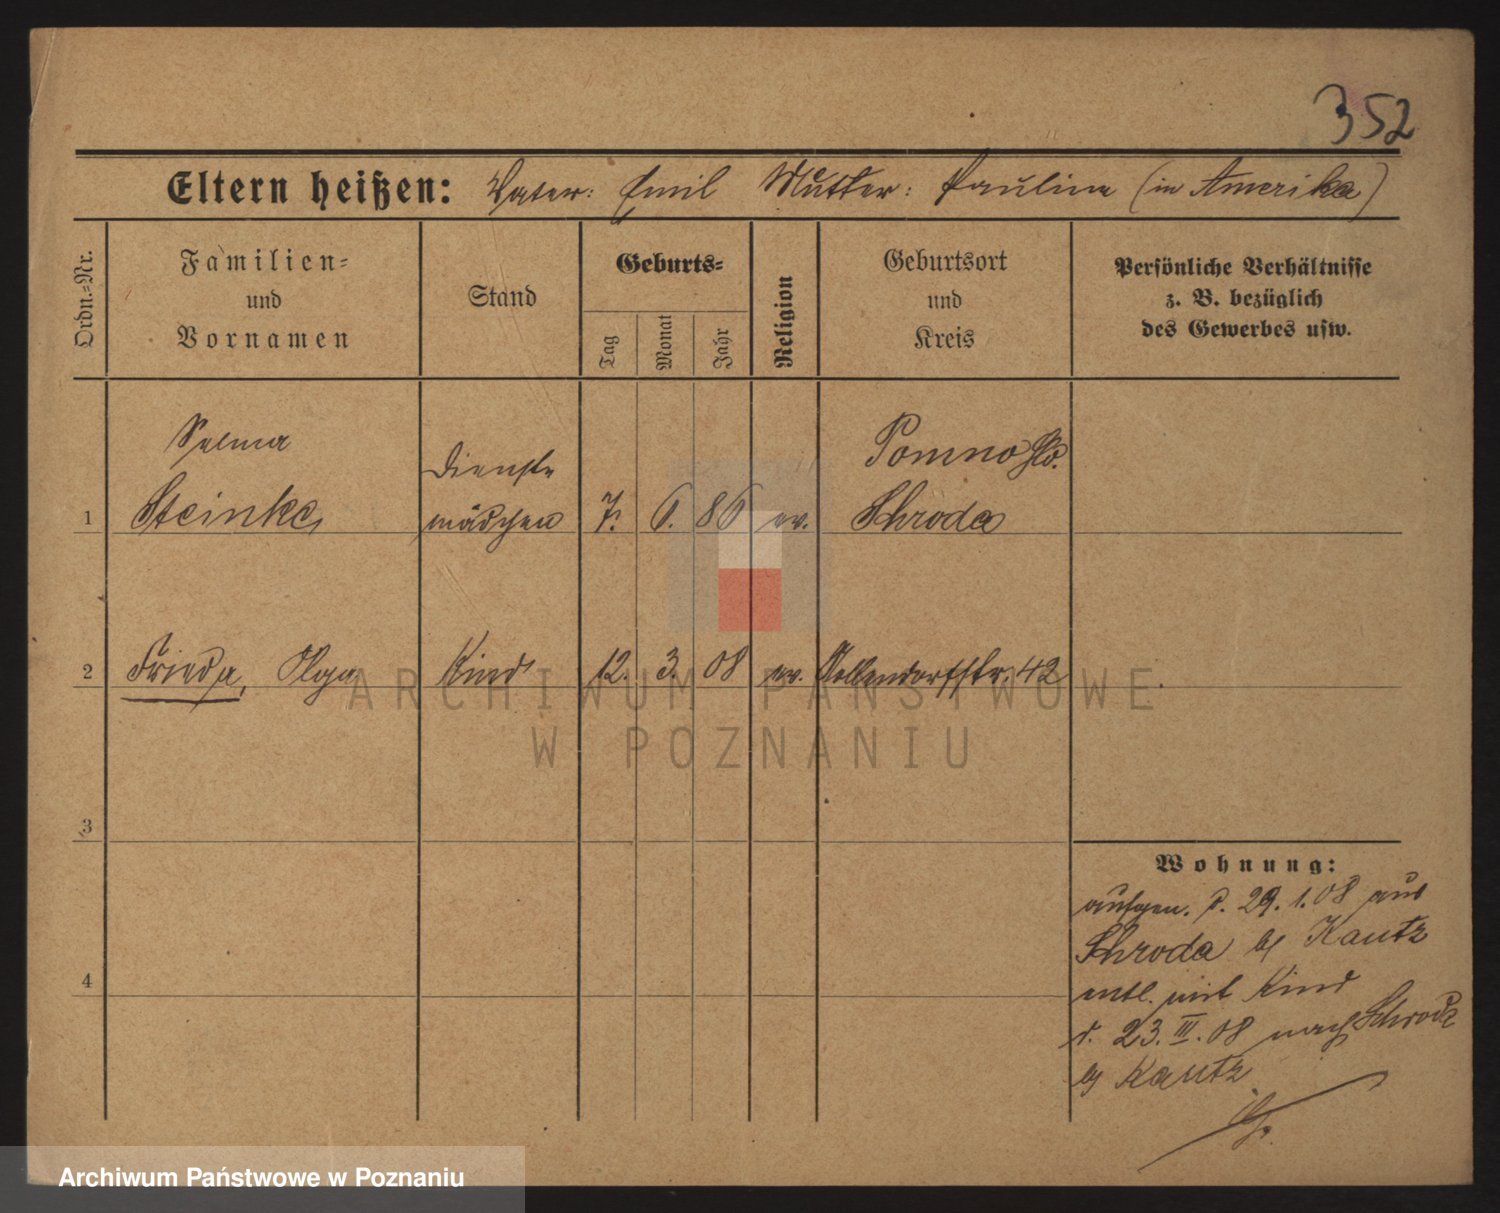 352
Eltern heißen: Vater: Emil Mutter: Pauline (in Amerika)
Ordn.=Nr.
Familien=
und
Vornamen
Stand
Geburts=
Tag
Monat
Jahr
Religion
Geburtsort
und
Kreis
Persönliche Verhältnisse
z. B. bezüglich
des Gewerbes usw.
1
Selma
Steinke,
Dienst-
mädchen
7. 6. 86
ev.
Pomno
Schroda
2
Frieda, Olga
Kind
12. 3. 08
ev.
42
3
4
Wohnung:
aufgen. d. 29. 1. 08 aus
Schroda bg Kautz
entl. mit Kind
d. 23. III. 08 nach Schroda
bg Kautz
ARCHIWUM PAŃSTWOWE
W POZNANIU
Archiwum Państwowe w Poznaniu